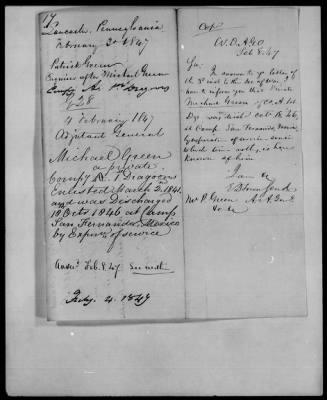 Lancaster, Pennsylvania
February 3d 1847
Patrick Green
Enquires after Michael Green
Comp'y A. 1st Dragoons
G 28
4 February 1847
Adjutant General
Michael Green
a private
Comp'y A. 1st Dragoons
Enlisted March 2nd 1841.
and was Discharged
10 Octr 1846 at Camp
San Fernandez, Mexico
by Expirn of service
Answd Feb. 8. 47
Feby. 4. 1847
Copy
W. D. A.G.O
Feb 8. 47
Sir,
In answer to yr letter of
the 3d inst to the Sec of War, I
have to inform you that Private
Michael Green of Co. A 1st
Dg was disch'd Oct. 10. 46,
at Camp San Fernandez, Mexico,
by expiration of service since
which time nothg. is here
known of him
I am &c
E D Townsend
Mr P. Green A. A. Gen